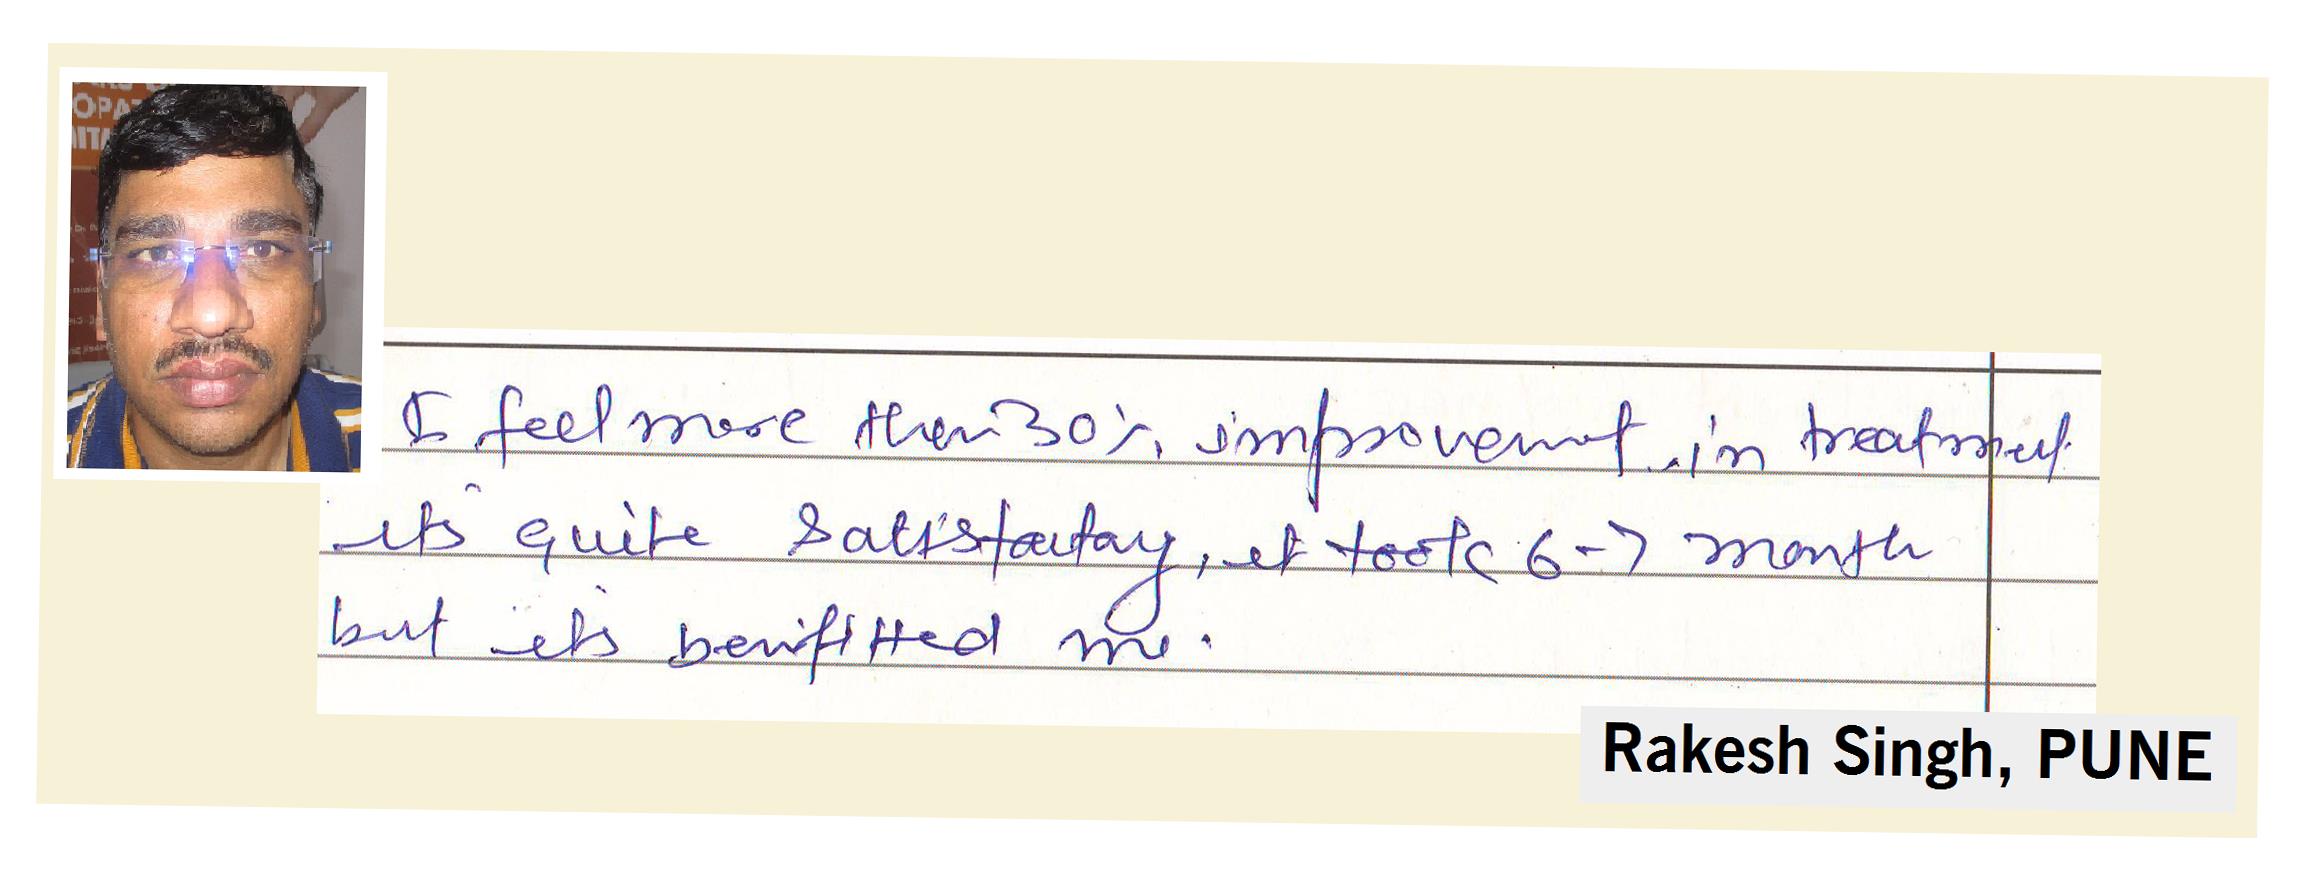 OPA
I feel more then 30%. improvemnt in treatment
its quite satisfactory, it took 6-7 month
but its benifitted me.
Rakesh Singh, PUNE